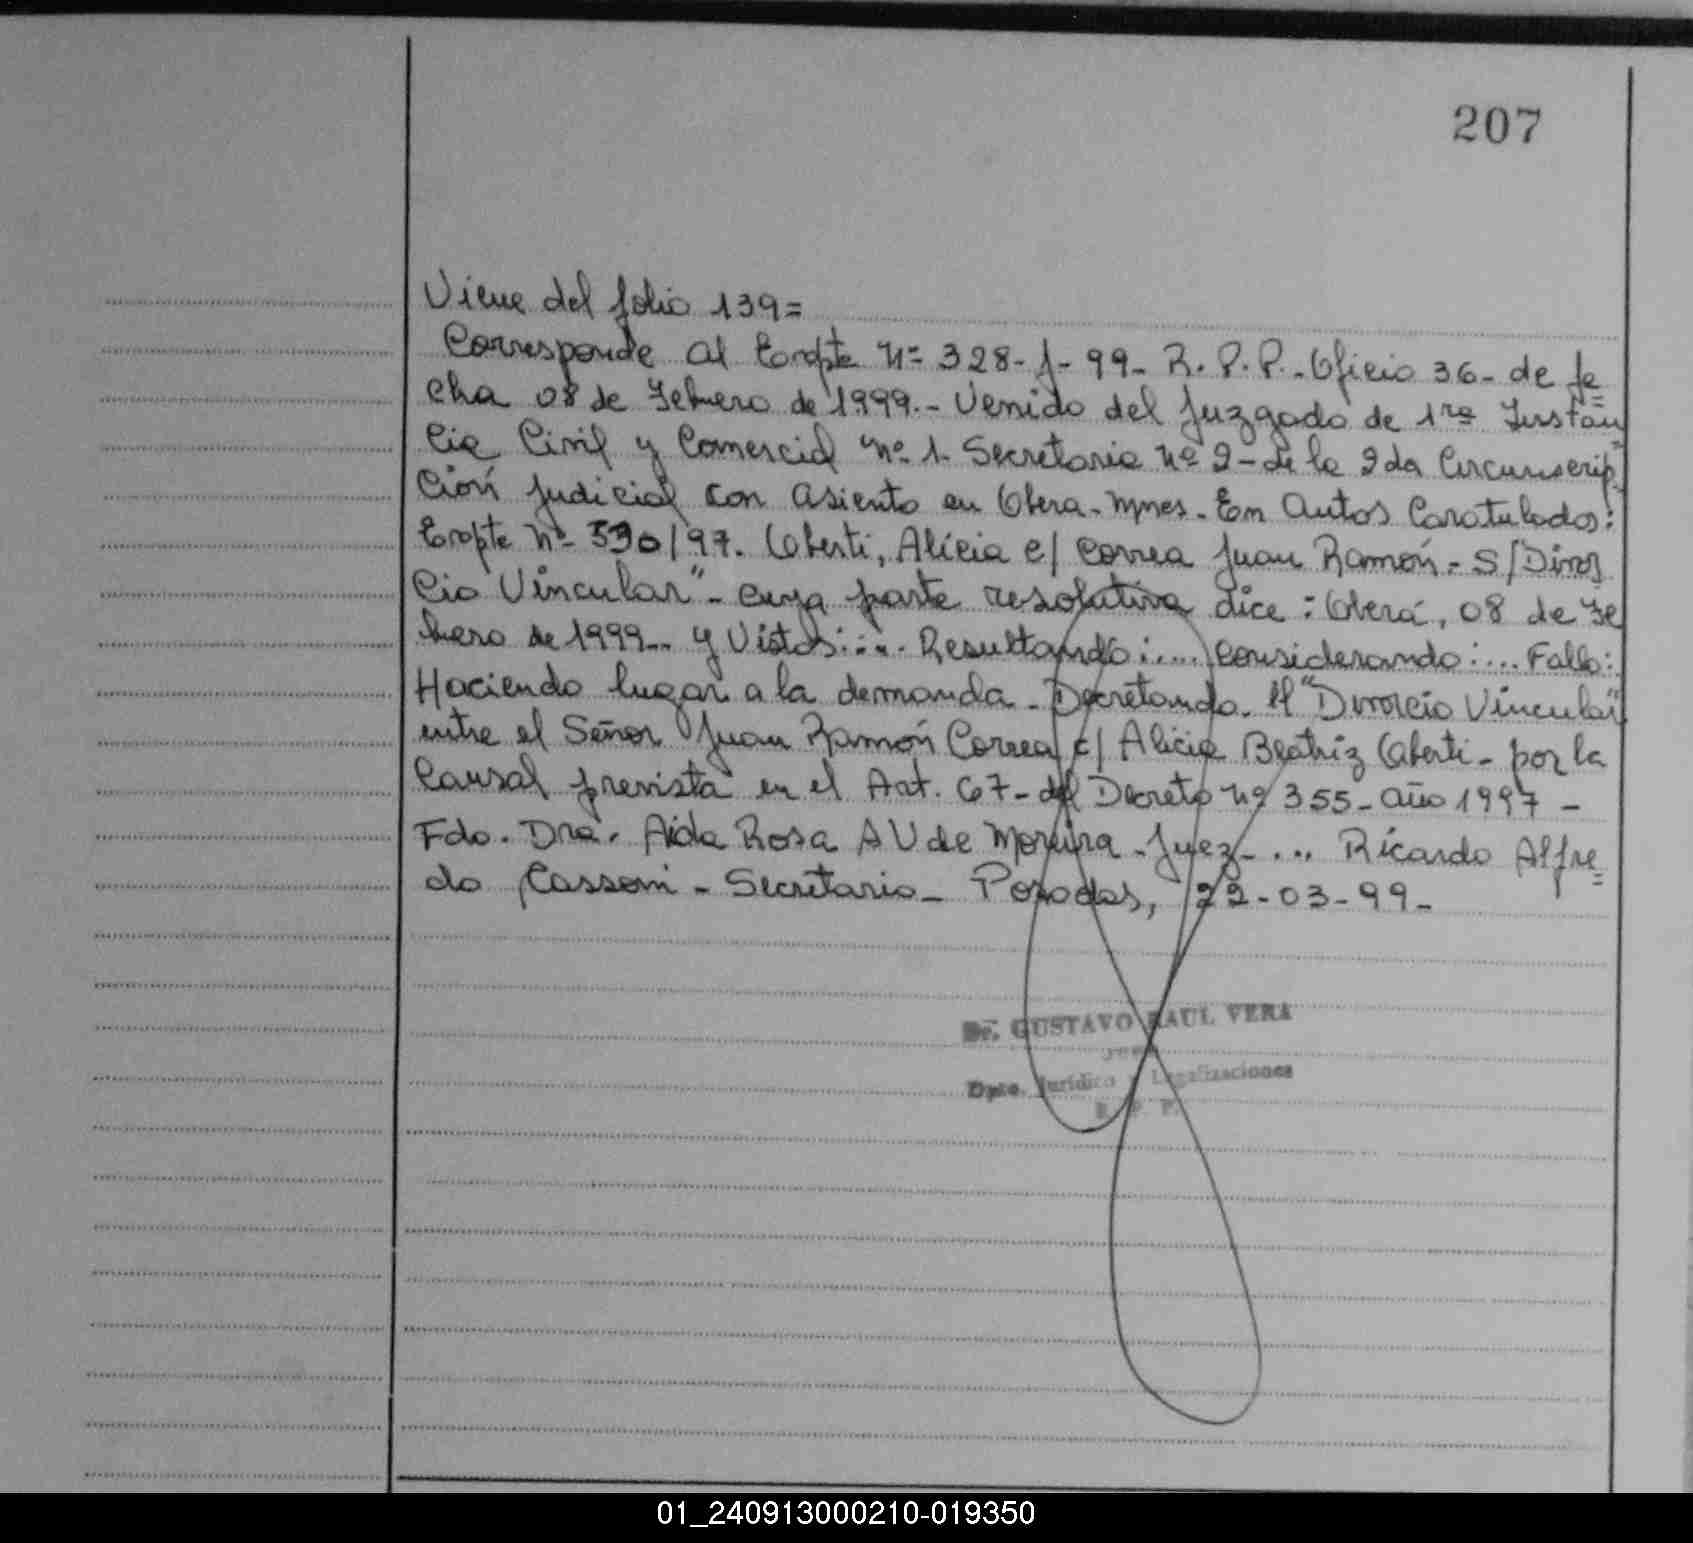 207
Viene del folio 139=
Corresponde al Expte Nº 328-J-99- R.P.P.-Oficio 36- de fe=
cha 08 de Febrero de 1999.- Venido del Juzgado de 1ra Instan=
cia Civil y Comercial Nº 1- Secretaria Nº 2-de la 2da Circunscrip=
ción Judicial con asiento en Obera-Mnes.-En Autos Caratulados:
Expte Nº 530/97. Oberti, Alicia c/ Correa Juan Ramón.- S/Divor
cio Vincular"- cuya parte resolutiva dice: Oberá, 08 de Fe
brero de 1999.. y Vistos:... Resultando:.... Considerando:.... Fallo:
Haciendo lugar a la demanda. Decretando. El "Divorcio Vincular"
entre el Señor Juan Ramón Correa c/ Alicia Beatriz Oberti- por la
Causal prevista en el Art. 67-del Decreto Nº 355-año 1997-
Fdo. Dra. Aida Rosa AV de Moreira-Juez-... Ricardo Alfre=
do Cassoni-Secretario- Posadas, 22-03-99-
Dr. GUSTAVO RAUL VERA
Dpto. Jurídico y Legalizaciones
R. P. P.
01_240913000210-019350